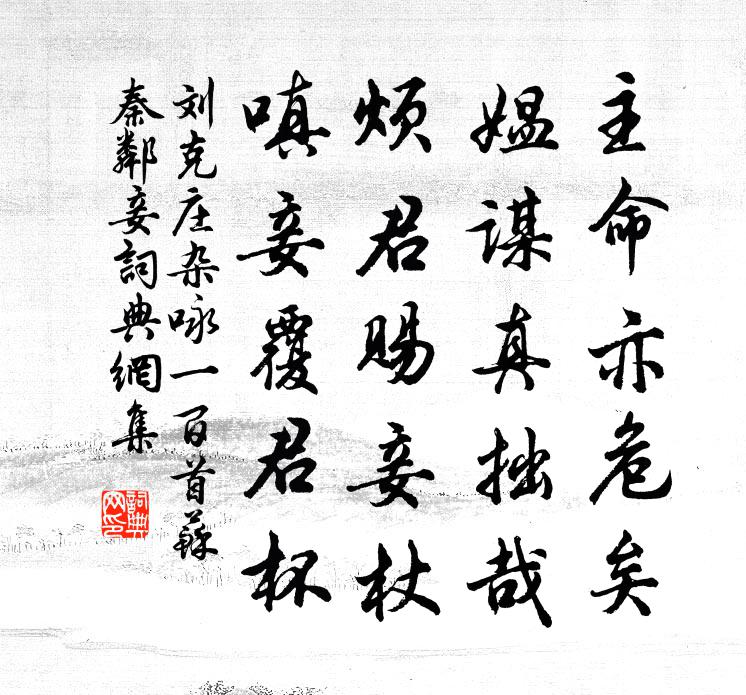 主命亦危矣
媪谋真拙哉
烦君赐妾杖
嗔妾覆君杯
刘克庄杂咏一百首苏
秦鄰妾詞典網集
詞典网印